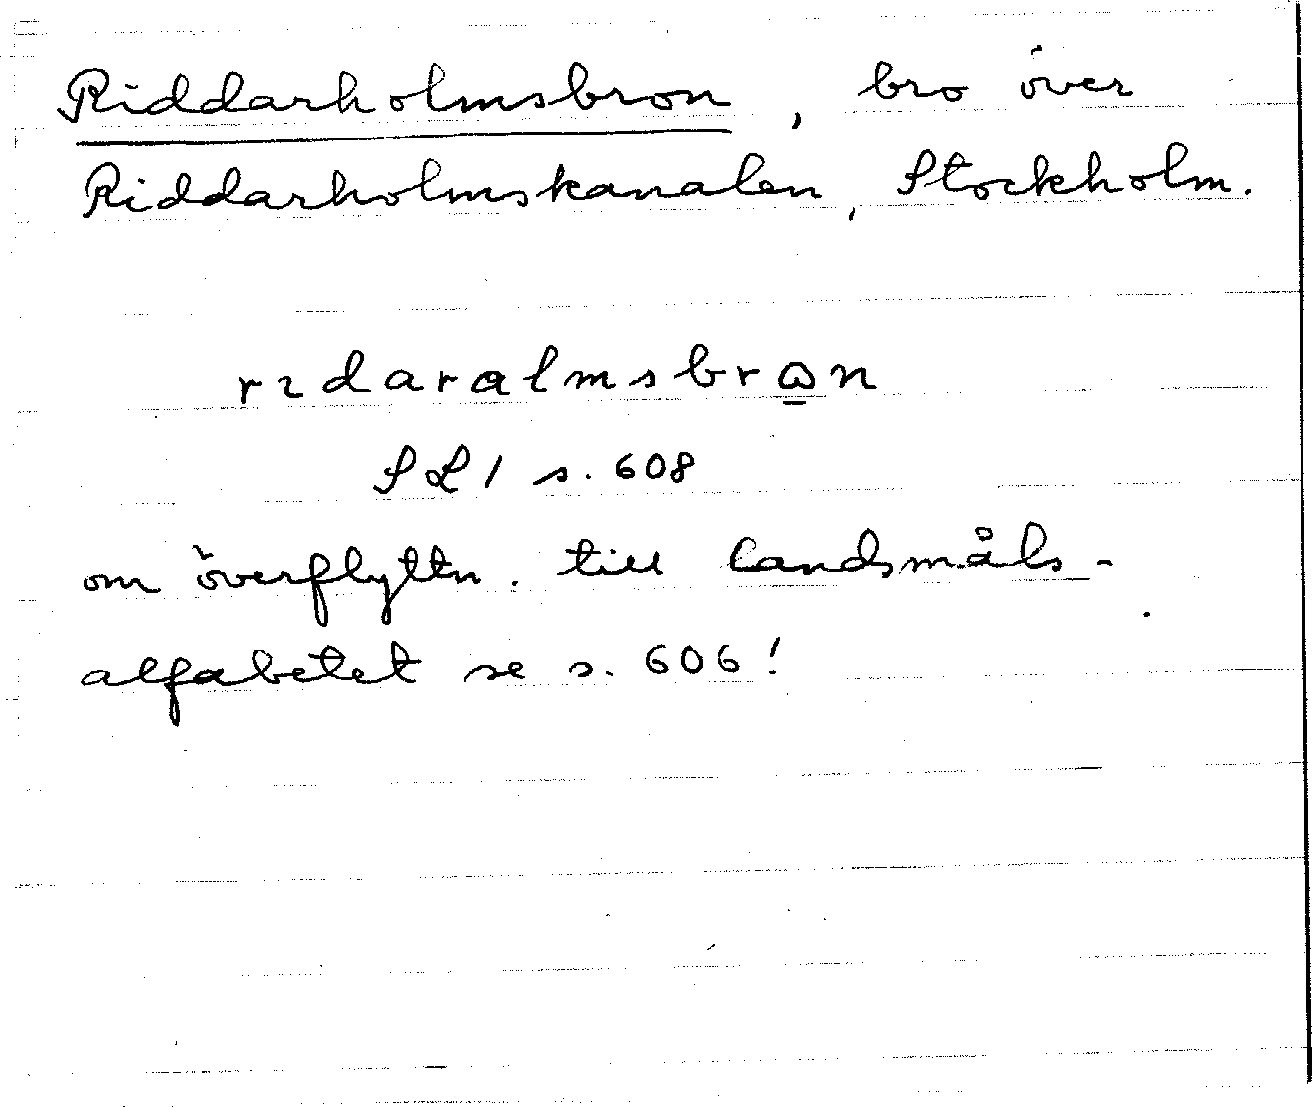 Riddarholmsbron, bro över
Riddarholmskanalen, Stockholm.
rıdaralmsbrɷ̱n
SL 1 s. 608
om överflyttn. till landsmåls-
alfabetet se s. 606!